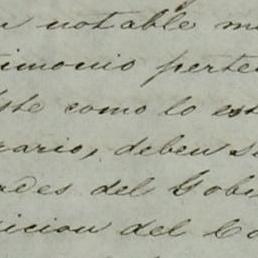 n notable m
timonio perte
iste como lo est
rario, deben s
ades del Gobi
icion del Co